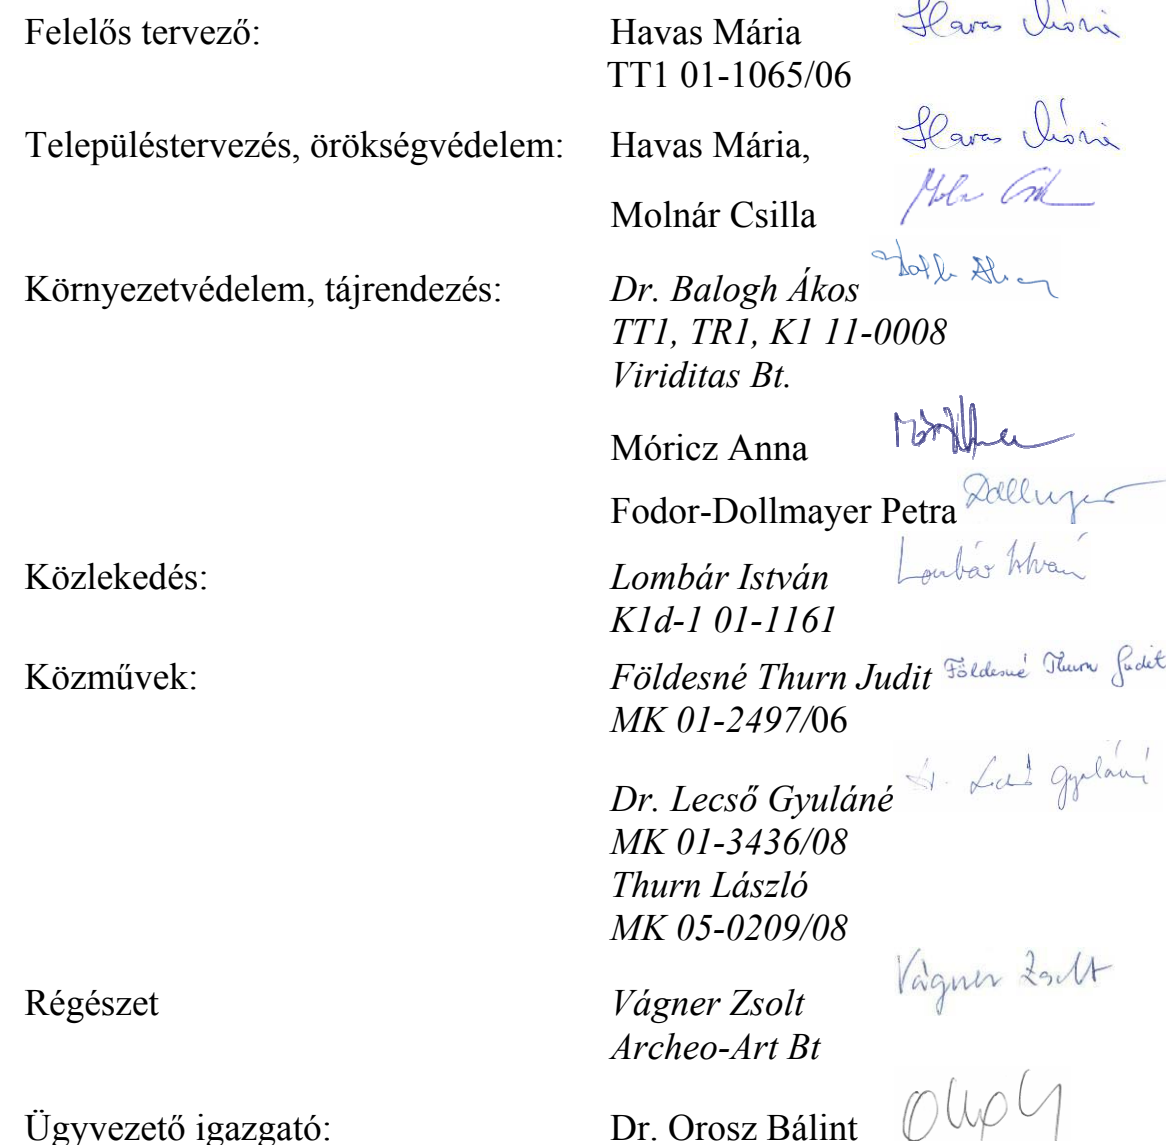 Felelős tervező: Havas Mária Havas Mária
TT1 01-1065/06
Településtervezés, örökségvédelem: Havas Mária, Havas Mária
Molnár Csilla
Környezetvédelem, tájrendezés: Dr. Balogh Ákos
TT1, TR1, K1 11-0008
Viriditas Bt.
Móricz Anna
Fodor-Dollmayer Petra
Közlekedés: Lombár István Lombár István
K1d-1 01-1161
Közművek: Földesné Thurn Judit Földesné Thurn Judit
MK 01-2497/06
Dr. Lecső Gyuláné Dr. Lecső Gyuláné
MK 01-3436/08
Thurn László
MK 05-0209/08
Régészet Vágner Zsolt Vágner Zsolt
Archeo-Art Bt
Ügyvezető igazgató: Dr. Orosz Bálint